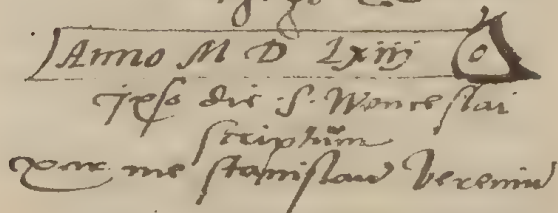 Anno M D Lxiiij
ipso die S. Wenceslai
scriptum
per me stanislaū